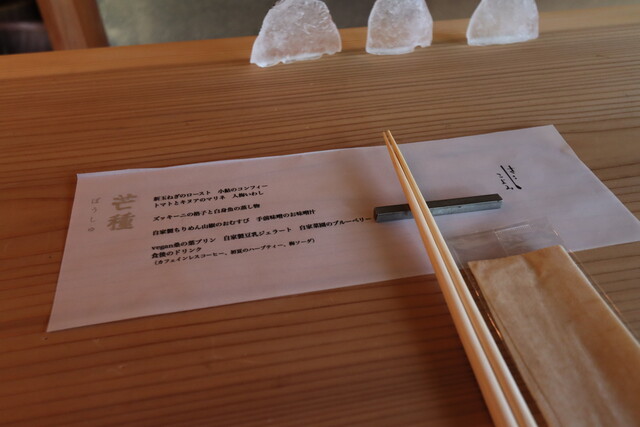 芒種
ぼうしゅ
新玉ねぎのロースト 小鮎のコンフィー
トマトとキヌアのマリネ 人参いわし
ズッキーニの餃子と白身魚の蒸し物
自家製ちりめん山椒のおむすび 手前味噌のお味噌汁
vegan桑の葉プリン 自家製豆乳ジェラート 自家菜園のブルーベリー
食後のドリンク
(カフェインレスコーヒー、野花のハーブティー、梅ソーダ)